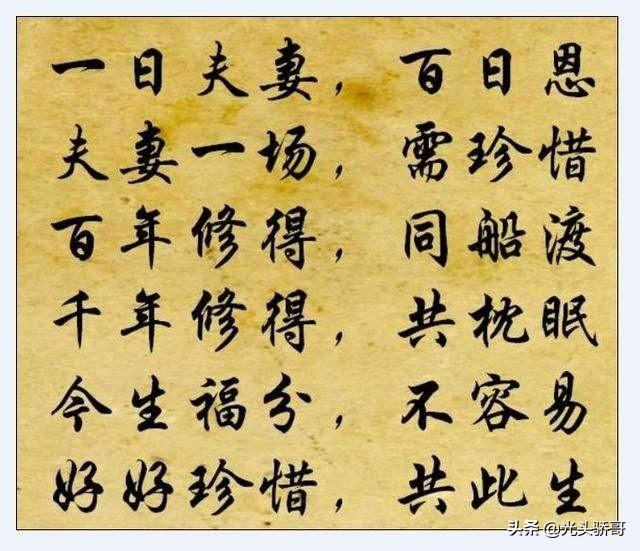 一日夫妻，百日恩
夫妻一场，需珍惜
百年修得，同船渡
千年修得，共枕眠
今生福分，不容易
好好珍惜，共此生
头条 @光头骄哥